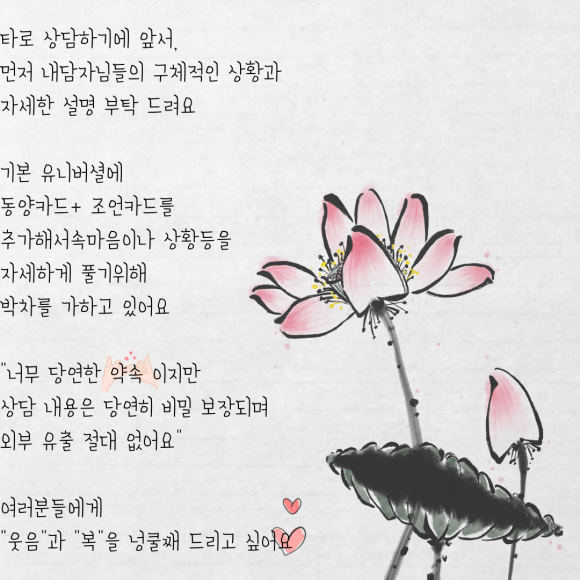 타로 상담하기에 앞서,
먼저 내담자님들의 구체적인 상황과
자세한 설명 부탁 드려요
기본 유니버셜에
동양카드+ 조언카드를
추가해서속마음이나 상황등을
자세하게 풀기위해
박차를 가하고 있어요
"너무 당연한 약속 이지만
상담 내용은 당연히 비밀 보장되며
외부 유출 절대 없어요"
여러분들에게
"웃음"과 "복"을 넝쿨째 드리고 싶어요